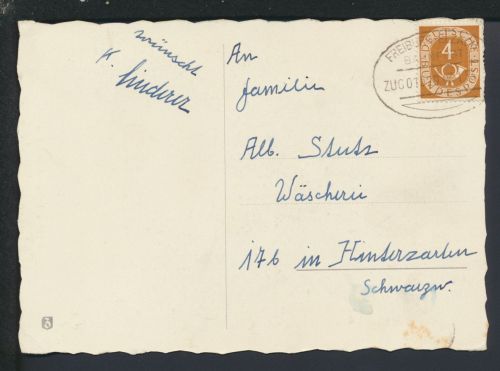 wünscht
K. Hinderer
An
Familie
Alb. Stutz
Wäscherei
176 in Hinterzarten
Schwarzw.
FREIBU
ZUG 01
4
DEUTSCHE
POST